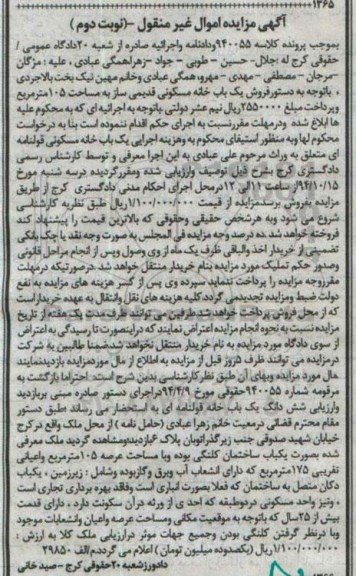 ۱۳۶۵
آگهی مزایده اموال غیر منقول -(نوبت دوم )
بموجب پرونده کلاسه ۹۴۰۰۵۵ ودادنامه واجرائیه صادره از شعبه ۲۰دادگاه عمومی /
حقوقی کرج له :جلال- حسین - طوبی - جواد -زهراهمگی عبادی ، علیه : مژگان
-مرجان -مصطفی -مهدی - مهرو،همگی عبادی وخانم مهین نیک بخت بالاجردی
، باتوجه به دستورفروش یک باب خانه مسکونی قدیمی ساز به مساحت ۱۰۵مترمربع
وپرداخت مبلغ ۲۵۵۰۰۰۰ریال نیم عشر دولتی ،باتوجه به اجرائیه ای که به محکوم علیه
ها ابلاغ شده ودرمهلت مقررنسبت به اجرای حکم اقدام ننموده است بنا به درخواست
محکوم لها وبه منظور استیفای محکوم به وهزینه اجرایی یک باب خانه مسکونی قولنامه
ای متعلق به وراث مرحوم علی عبادی به این اجرا معرفی و توسط کارشناس رسمی
دادگستری کرج بشرح ذیل توصیف وارزیابی شده ومقررگردیده درسه شنبه مورخ
۹۴/۱۰/۱۵از ساعت ۱۰الی ۱۲درمحل اجرای احکام مدنی دادگستری کرج از طریق
مزایده بفروش برسد.مزایده از قیمت ۱/۱۰۰/۰۰۰/۰۰۰ریال طبق نظریه کارشناسی
شروع می شود وبه هرشخص حقیقی وحقوقی که بالاترین قیمت را پیشنهاد کند
فروخته خواهد شد .ده درصد وجه مزایده فی المجلس به صورت وجه نقد یا چک بانکی
تضمینی از خریدار اخذ والباقی ظرف یک ماه از وی وصول وپس از انجام مراحل قانونی
وصدور حکم تملیک مورد مزایده بنام خریدار منتقل خواهد شد .درصورتیکه درمهلت
مقرروجه مزایده را پرداخت ننماید سپرده وی پس از کسر هزینه های مزایده به نفع
دولت ضبط ومزایده تجدیدمی گردد.کلیه هزینه های نقل وانتقال به عهده خریداراست
که از محل فروش پرداخت خواهد شد.طرفین می توانند ظرف مدت یک هفته از تاریخ
مزایده نسبت به نحوه انجام مزایده اعتراض نمایند که دراینصورت تا رسیدگی به اعتراض
از سوی دادگاه مورد مزایده به نام خریدار منتقل نخواهد شد.ضمنا طالبین به شرکت
درمزایده می توانند ظرف ۵روز قبل از مزایده به اطلاع از مال موردمزایده بازدیدنمایند
.مال مورد مزایده وبهای آن طبق نظر کارشناسی بدین شرح است. احتراما بازگشت به
مرقومه شماره ۹۴۰۰۵۵حقوقی مورخ ۹۴/۴/۹دراجرای دستور صادره مبنی بربازدید
وارزیابی شش دانگ یک باب خانه قولنامه ای به استحضار می رساند :طبق دستور
مقام محترم قضائی درمعیت خانم زهرا عبادی (حامل نامه ) از محل ملک واقع درکرج
خیابان شهید صدوقی جنب زیرگذراتوبان پلاک ۶بازدیدومشاهده گردید ملک معرفی
شده بصورت یکباب ساختمان کلنگی بوده وبا مساحت عرصه ۱۰۵مترمربع واعیانی
تقریبی ۱۷۵مترمربع که دارای انشعاب آب وبرق وگازبوده وشامل : زیرزمین ، یکباب
دکان متصل به ساختمان که فعلا بصورت انباری است وفاقد بهره برداری تجاری است
، ونیز واحد مسکونی دردوطبقه که احد ی از ورثه درآن سکونت دارد ، دارای قدمت
بیش از ۲۵سال که باتوجه به موقعیت مکانی ومساحت عرصه واعیان وانشعابات موجود
وبا درنظر گرفتن کلنگی بودن وجمیع جهات موثر درارزیابی ملک کلا به ارزش :
۱/۱۰۰/۰۰۰/۰۰۰ریال (یکصدوده میلیون تومان ) اعلام می گردد.م/الف ۲۹۸۵۰
دادورزشعبه ۲۰حقوقی کرج - صید خانی